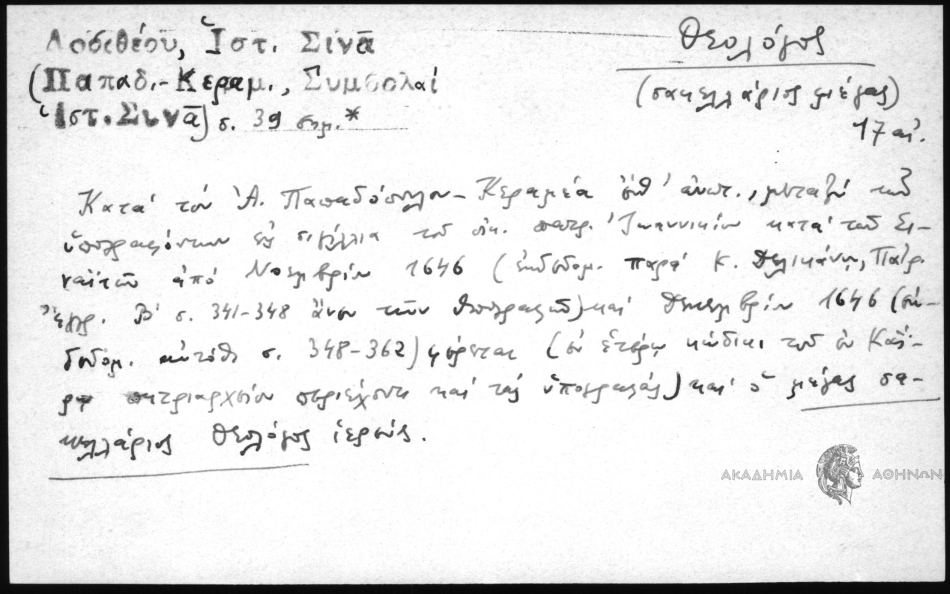 Δοσιθέου, Ἱστ. Σινᾶ
(Παπαδ.-Κεραμ., Συμβολαί
Ἱστ. Σινᾶ) σ. 39 σημ.*
Θεολόγος
(σακελλάριος μέγας)
17 αἰ.
Κατά τόν Ἀ. Παπαδόπουλον-Κεραμέα ἔνθ' ἀνωτ., μεταξύ τῶν
ὑπογραψάντων ἐν σιγίλλια τοῦ οἰκ. πατρ. Ἰωαννικίου κατά τῶν Σι-
ναϊτῶν ἀπό Νοεμβρίου 1646 (ἐκδεδομ. παρά Κ. Δελικάνη, Πατρ.
Ἔγγρ. Β' σ. 341-348 ἄνευ τῶν ὑπογραφῶν) καί Δεκεμβρίου 1646 (ἐκ-
δεδομ. αὐτόθι σ. 348-362) φέρεται (ἐν ἑτέρῳ κώδικι τοῦ ἐν Καΐ-
ρῳ πατριαρχείου περιέχοντι καί τάς ὑπογραφάς) καί ὁ μέγας σα-
κελλάριος Θεολόγος ἱερεύς.
ΑΚΑΔΗΜΙΑ ΑΘΗΝΩΝ